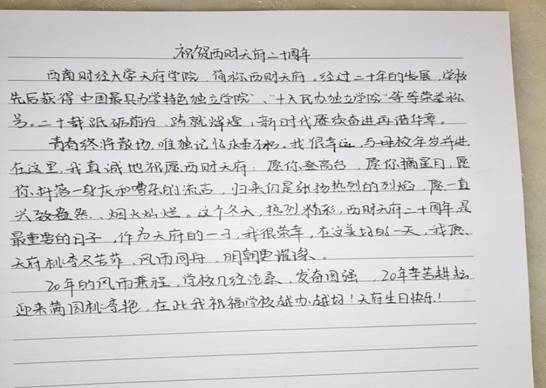 祝贺西财天府二十周年
西南财经大学天府学院,简称西财天府。经过二十年的发展,学校
先后获得"中国最具办学特色独立学院"、"十大民办独立学院"等等荣誉称
号。二十载砥砺前行,铸就辉煌,新时代赓续奋进再谱华章。
青春终将散场,唯独记忆永垂不朽。我很幸运,与母校年岁并进
在这里,我真诚地祝愿西财天府:愿你登高台,愿你摘星月,愿
你抖落一身灰和嘈杂的流言,归来仍是纯粹热烈的烈焰,愿一直
兴致盎然,烟火灿烂。这个冬天,热烈精彩,西财天府二十周年是
最重要的日子,作为天府的一子,我很荣幸,在这美好的一天,我愿
天府桃李尽芳菲,风雨同舟,明朝更璀璨。
20年的风雨兼程,学校几经沧桑,发奋图强,20年辛苦耕耘
迎来满园桃李艳,在此我祝福学校越办越好!天府生日快乐!